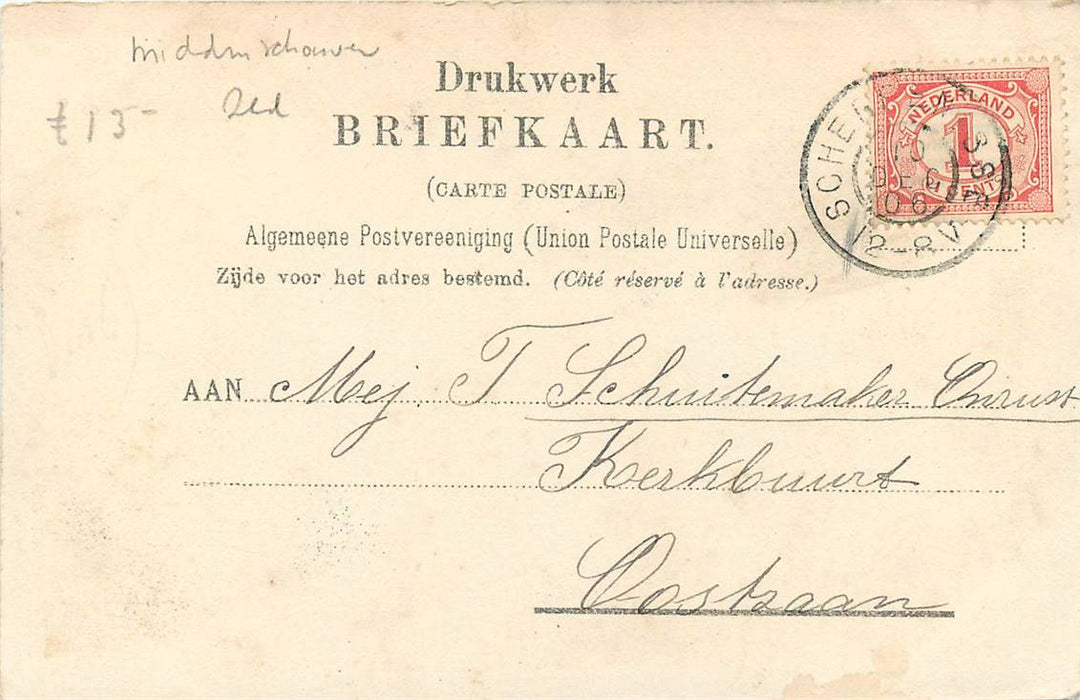 Middenschouwen
Drukwerk
f 13- Zld
BRIEFKAART.
(CARTE POSTALE)
Algemeene Postvereeniging (Union Postale Universelle)
Zijde voor het adres bestemd. (Côté réservé à l'adresse.)
NEDERLAND
1
CENT
DEC
06
12-8V
AAN Mej. T Schuitemaker Onrust
Kerkbuurt
Oostzaan